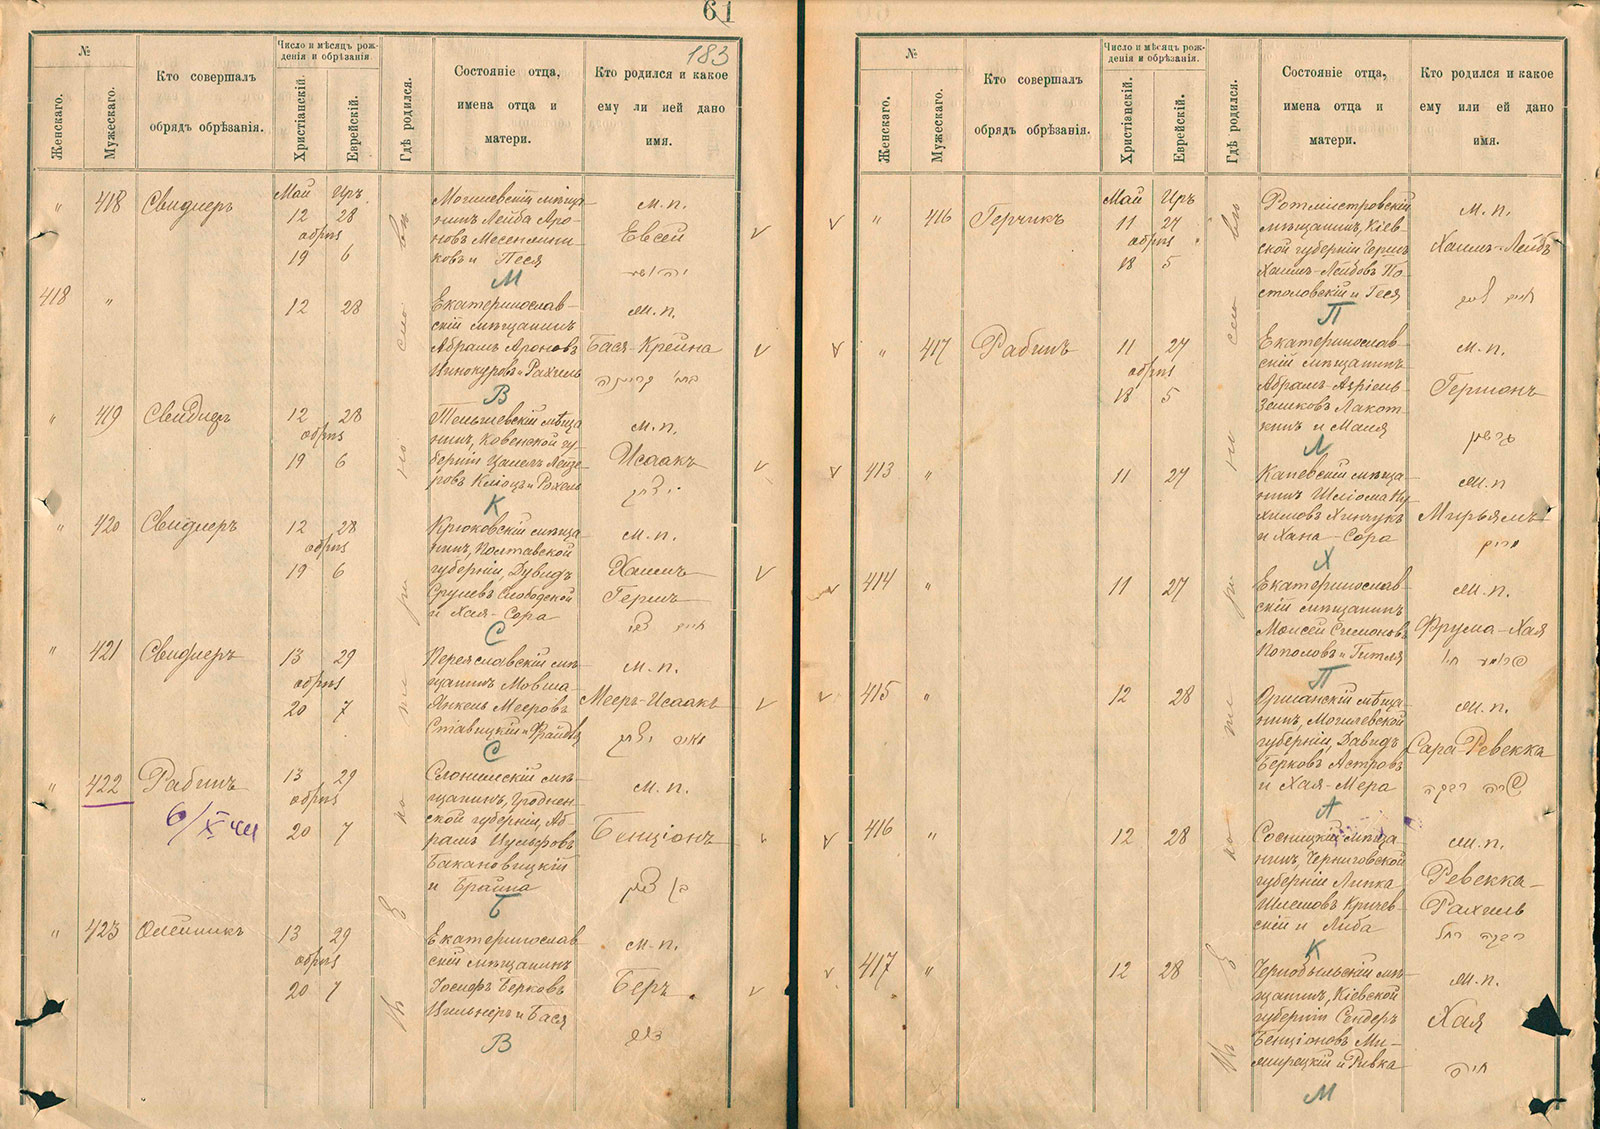 61
183
№
Женскаго.
Мужескаго.
Кто совершалъ
обрядъ обрѣзанія.
Число и мѣсяцъ рож-
денія и обрѣзанія.
Христіанскій.
Еврейскій.
Гдѣ родился.
Состояніе отца,
имена отца и
матери.
Кто родился и какое
ему ли ией дано
имя.
" 418 Свидлеръ
Май Иръ
12 28
обрѣз
19 6
Могилевскій мѣща-
нинъ Лейба Аро-
новъ
и Песя
М
м.п.
Евсей
418 "
12 28
Екатеринослав-
скій мѣщанинъ
Абрамъ Ароновъ
Винокуровъ и Рахиль
В
м.п.
Бася-Крейна
" 419 Свидлеръ
12 28
обрѣз
19 6
Тельшевскій мѣща-
нинъ, Ковенской гу-
берніи Лейзе-
ровъ и Рохель
К
м.п.
Исаакъ
יצחק
" 420 Свидлеръ
12 28
обрѣз
19 6
Крюковскій мѣща-
нинъ, Полтавской
губерніи, Дувидъ
Срулевъ Слободской
и Хая-Сора
С
м.п.
Хаимъ
Гершъ
חיים צבי
" 421 Свидлеръ
13 29
обрѣз
20 7
Переяславскій мѣ-
щанинъ Мовша-
Янкель Мееровъ
Ставицкій и
С
м.п.
Мееръ-Исаакъ
מאיר יצחק
" 422 Рабинъ
6/X 44
13 29
обрѣз
20 7
Слонимскій мѣ-
щанинъ, Гроднен-
ской губерніи, Аб-
рамъ
Бакановицкій
и Брайна
Б
м.п.
Бенціонъ
בן ציון
" 423 Олейникъ
13 29
обрѣз
20 7
Екатеринослав-
скій мѣщанинъ
Іосифъ Берковъ
и Бася
В
м.п.
Беръ
בער
№
Женскаго.
Мужескаго.
Кто совершалъ
обрядъ обрѣзанія.
Число и мѣсяцъ рож-
денія и обрѣзанія.
Христіанскій.
Еврейскій.
Гдѣ родился.
Состояніе отца,
имена отца и
матери.
Кто родился и какое
ему или ей дано
имя.
" 416 Герчикъ
Май Иръ
11 27
обрѣз
18 5
Ротмистровскій
мѣщанинъ, Кіев-
ской губерніи Гершъ
Хаимъ-Лейбовъ По-
столовскій и Геся
П
м.п.
Хаимъ-Лейбъ
" 417 Рабинъ
11 27
обрѣз
18 5
Екатеринослав-
скій мѣщанинъ
Абрамъ-Азріель-
Зеликовъ Лакот-
кинъ и Маня
Л
м.п.
Гершонъ
גרשון
413 "
11 27
Каневскій мѣща-
нинъ Шліома Ну-
химовъ Хинчукъ
и Хана-Сора
Х
м.п
Мирьямъ
מרים
414 "
11 27
Екатеринослав-
скій мѣщанинъ
Моисей Симоновъ
Пополовъ и Гитля
П
м.п.
Фрума-Хая
415 "
12 28
Оршанскій мѣща-
нинъ, Могилевской
губерніи, Давидъ
Берковъ Астровъ
и Хая-Мера
А
м.п.
Сара-Ревекка
שרה רבקה
416 "
12 28
Сосницкій мѣща-
нинъ, Черниговской
губерніи Липка-
Шлемовъ Кричев-
скій и Либа
К
м.п.
Ревекка-
Рахиль
רבקה רחל
417 "
12 28
Чернобыльскій мѣ-
щанинъ, Кіевской
губерніи Сендеръ
Бенціоновъ Ми-
мирецкій и Ривка
М
м.п.
Хая
חיה